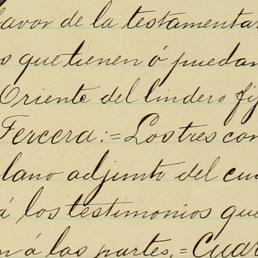 favor de la testamentar
s que tienen ó puedan
Oriente del lindero fij
Tercera:= Los tres con
plano adjunto del cua
á los testimonios que
n á las partes.= Cuar